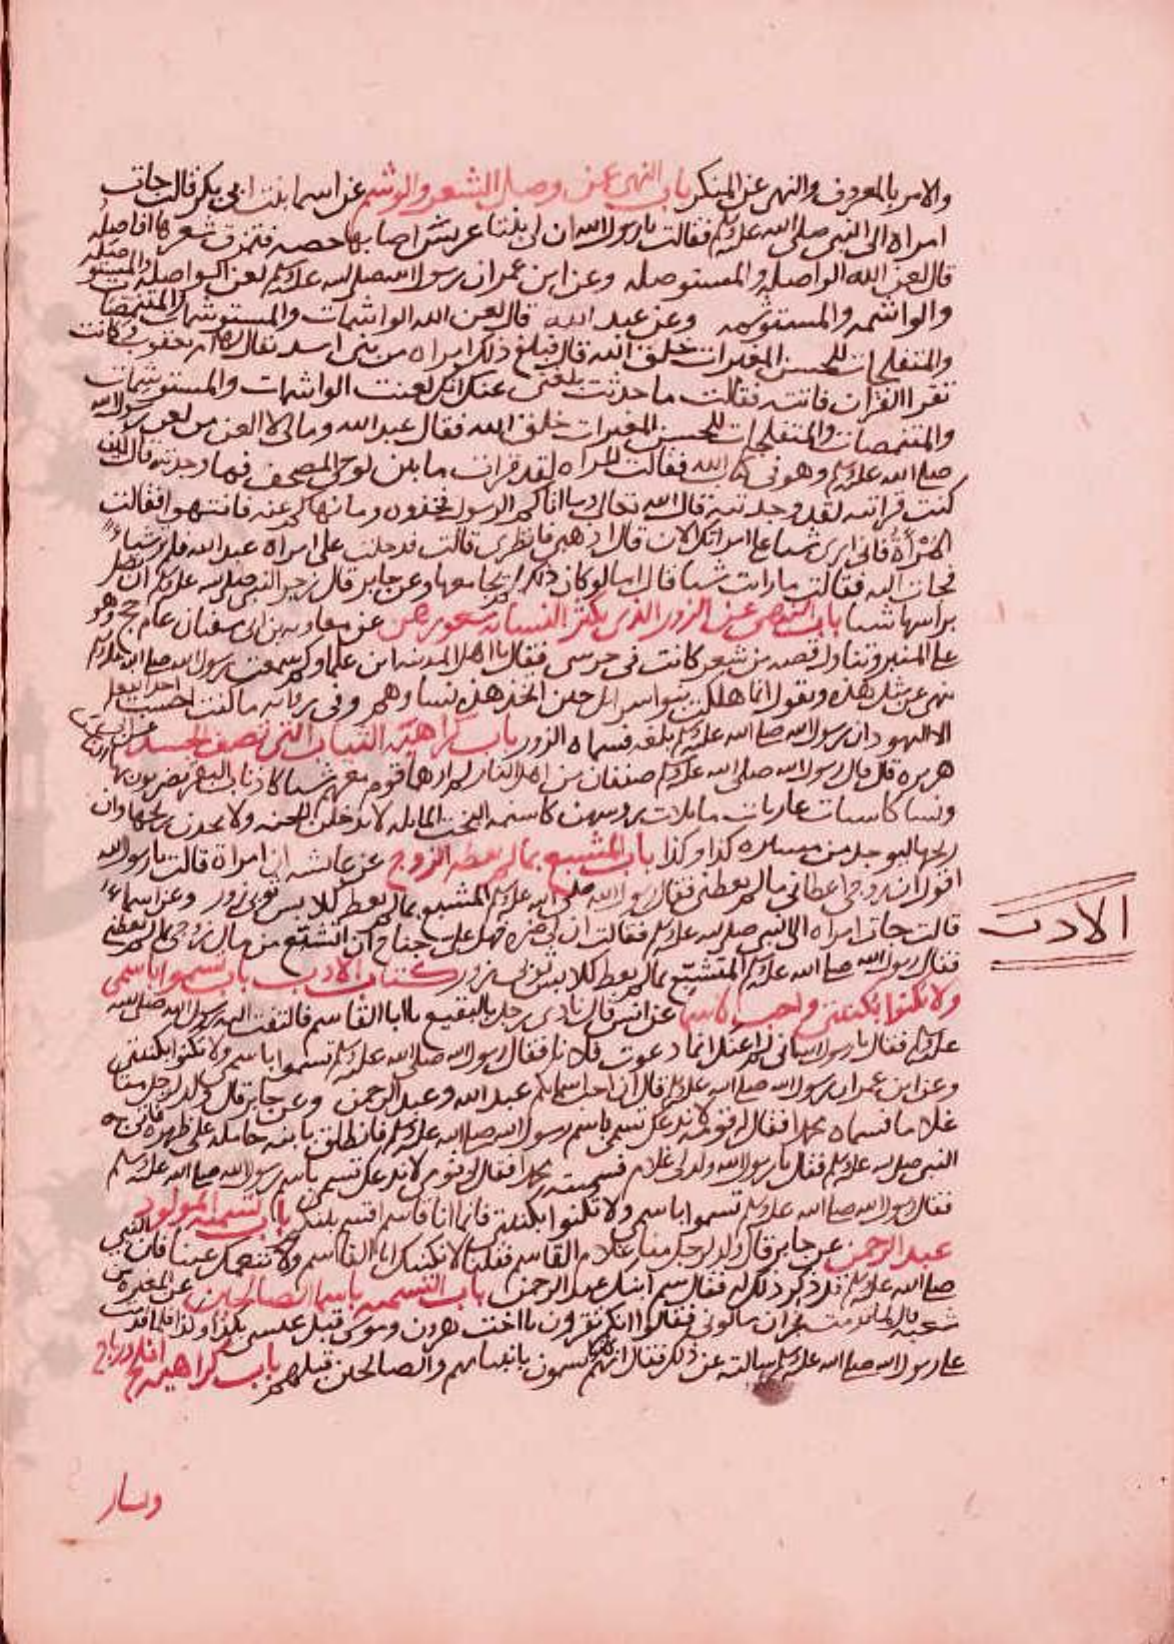 والامر بالمعروف والنهى عن المنكر باب النهى عن وصل الشعر والوشم عن اسما بنت ابى بكر قالت جات
امراه الى النبى صلى الله عليه وسلم فقالت يارسول الله ان لى بنتا عريسا اصابها حصبه فتمزق شعرها افاصله
قال لعن الله الواصله والمستوصله وعن ابن عمر ان رسول الله صلى الله عليه وسلم لعن الواصله والمستوصله
والواشمه والمستوشمه وعن عبد الله قال لعن الله الواشمات والمستوشمات والمتنمصات
والمتفلجات للحسن المغيرات خلق الله قال فبلغ ذلك امراه من بنى اسد يقال لها ام يعقوب وكانت
تقرا القران فاتته فقالت ما حديث بلغنى عنك انك لعنت الواشمات والمستوشمات
والمتنمصات والمتفلجات للحسن المغيرات خلق الله فقال عبد الله ومالى لا العن من لعن رسول الله
صلى الله عليه وسلم وهو فى كتاب الله فقالت المراه لقد قرات ما بين لوحى المصحف فما وجدته قال لين
كنت قراتيه لقد وجدتيه قال الله تعالى وما اتاكم الرسول فخذوه وما نهاكم عنه فانتهوا فقالت
المرأة فانى ارى شيا على امراتك الان قال اذهبى فانظرى قالت فدخلت على امراة عبد الله فلم تر شياء
فجات اليه فقالت ما رايت شيا قال اما لو كان ذلك لم نجامعها وعن جابر قال زجر النبى صلى الله عليه وسلم ان تصل
براسها شيا باب النهى عن الزور الذى يكثر النسا به شعورهن عن معاويه بن ابى سفيان عام حج وهو
على المنبر وتناول قصه من شعر كانت فى حرسى فقال يا اهل المدينه اين علماوكم سمعت رسول الله صلى الله عليه وسلم
ينهى عن مثل هذه ويقول انما هلكت بنو اسرايل حين اتخذ هذه نساوهم وفى روايه ما كنت احسب احدا يفعله
الا اليهود ان رسول الله صلى الله عليه وسلم بلغه فسماه الزور باب كراهية الثياب التى تصف الجسد عن ابى
هريره قال قال رسول الله صلى الله عليه وسلم صنفان من اهل النار لم ارهما قوم معهم سياط كاذناب البقر يضربون بها الناس
ونسا كاسيات عاريات مايلات روسهن كاسنمه البخت المايله لا يدخلن الجنه ولا يجدن ريحها وان
ريحها ليوجد من مسيره كذا وكذا باب المتشبع بما لم يعطه الزوج عن عايشه ان امراة قالت يارسول الله
اقول ان زوجى اعطانى مالم يعطنى فقال رسول الله صلى الله عليه وسلم المتشبع بما لم يعط كلابس ثوبى زور وعن اسماء
قالت جات امراه الى النبى صلى الله عليه وسلم فقالت ان لى ضره فهل على جناح ان اتشبع من مال زوجى مالم يعطنى
فقال رسول الله صلى الله عليه وسلم المتشبع بمالم يعط كلابس ثوبى زور كتاب الادب باب تسموا باسمى
ولا تكنوا بكنيتى عن انس قال نادى رجل بالبقيع ياابا القاسم فالتفت اليه رسول الله صلى الله
عليه وسلم فقال يارسول الله انى لم اعنك انما دعوت فلانا فقال رسول الله صلى الله عليه وسلم تسموا باسمى ولا تكنوا بكنيتى
وعن ابن عمر ان رسول الله صلى الله عليه وسلم قال ان احب اسمايكم عبد الله وعبد الرحمن وعن جابر قال ولد لرجل منا
غلاما فسماه محمدا فقال له قومه لا ندعك تسمى باسم رسول الله صلى الله عليه وسلم فانطلق بابنه حامله على ظهره فاتى به
النبى صلى الله عليه وسلم فقال يارسول الله ولد لى غلام فسميته محمدا فقال لى قومى لا ندعك تسمى باسم رسول الله صلى الله عليه وسلم
فقال رسول الله صلى الله عليه وسلم تسموا باسمى ولا تكنوا بكنيتى فانما انا قاسم اقسم بينكم باب تسميه المولود
عبد الرحمن عن جابر قال ولد لرجل منا غلام القاسم فقلنا لا نكنيك ابا القاسم ولا ننعمك عينا فاتى النبى
صلى الله عليه وسلم فذكر ذلك له فقال سم ابنك عبد الرحمن باب التسميه باسما الصالحين عن المغيره بن
شعبه قال لما قدمت نجران سالونى فقالوا انكم تقرون يااخت هرون وموسى قبل عيسى بكذا وكذا فلما قدمت
على رسول الله صلى الله عليه وسلم سالته عن ذلك فقال انهم كانوا يسمون بانبيايهم والصالحين قبلهم باب كراهية افلح ورباح
الادب
ويسار